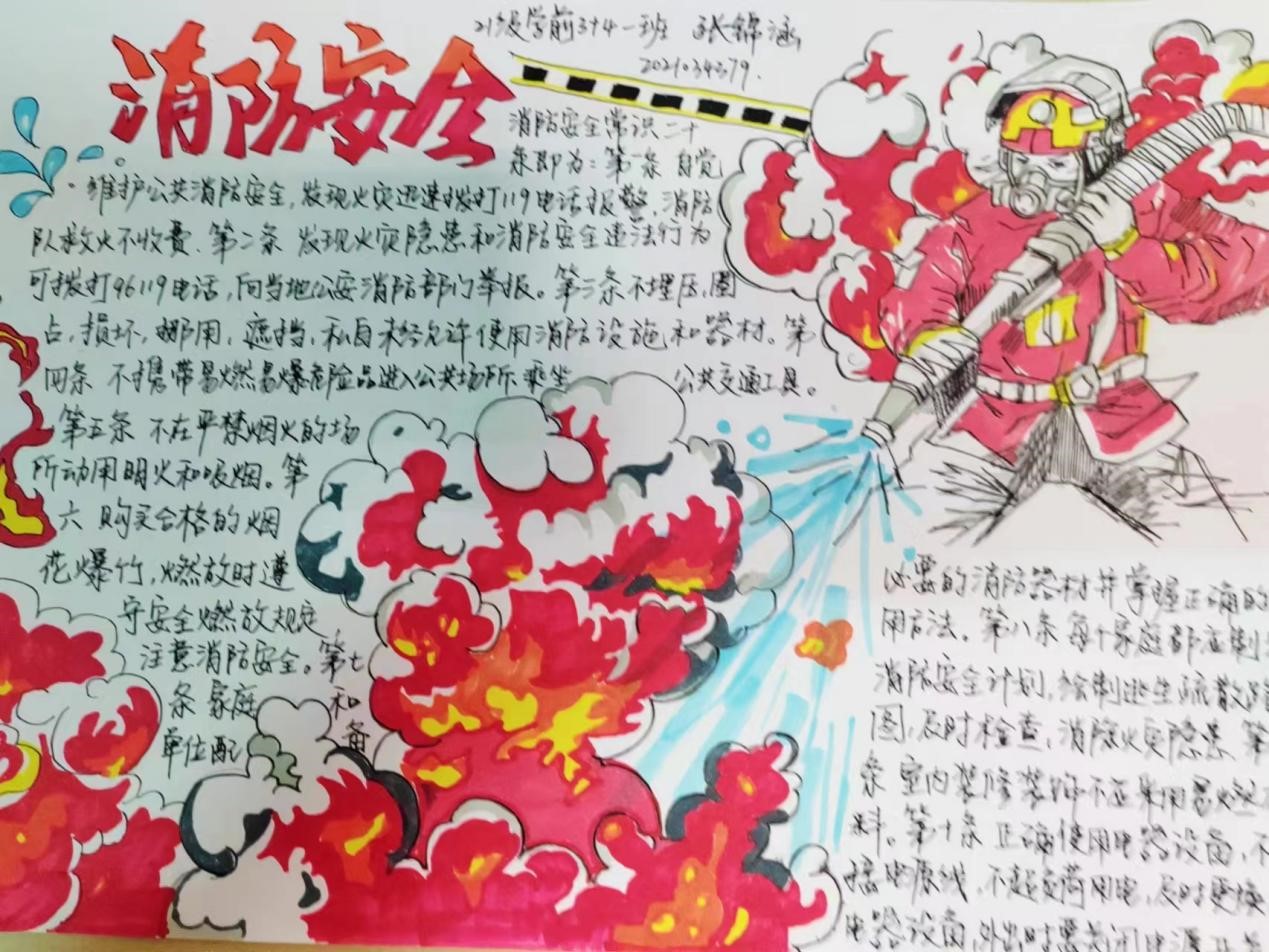 消防安全
21级学前3+4一班 张锦涵
2021034379.
消防安全常识二十
条即为：第一条 自觉
维护公共消防安全，发现火灾迅速拨打119电话报警，消防
队救火不收费、第二条 发现火灾隐患和消防安全违法行为
可拨打96119电话，向当地公安消防部门举报。第三条 不埋压，圈
占，损坏，挪用，遮挡，私自未经允许使用消防设施和器材。第
四条 不携带易燃易爆危险品进入公共场所、乘坐 公共交通工具。
第五条 不在严禁烟火的场
所动用明火和吸烟。第
六 购买合格的烟
花爆竹，燃放时遵
守安全燃放规定
注意消防安全。第七
条 家庭 和
单位配 备
必要的消防器材并掌握正确的
用方法。第八条 每个家庭都应制
消防安全计划，绘制逃生疏散路
图，及时检查，消除火灾隐患 第
条 室内装修装饰不应采用易燃
料。第十条 正确使用电器设备，不
接电源线，不超负荷用电，及时更换
电器设备，外出时要关闭电源